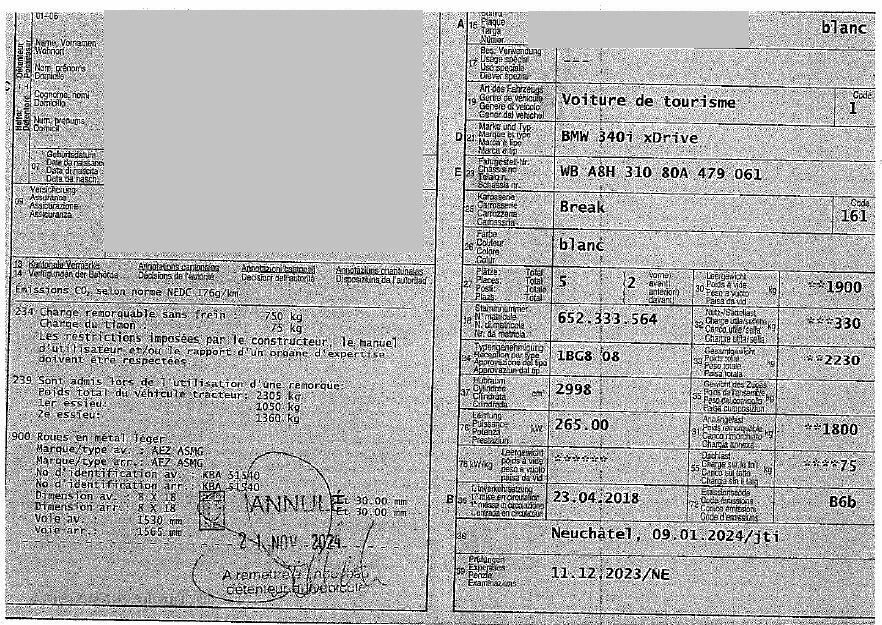 01-06
Name, Vornamen
Wohnort
Nom, prénoms
Domicile
Cognome, nomi
Domicilio
Num, prenums
Domicil
07
Geburtsdatum
Date de naissance
Data di nascita
Data da nasch.
09
Versicherung
Assurance
Assicurazione
Assicuranza
13 Kantonale Vermerke
Annotations cantonales
Annotazioni cantonali
Annotaziuns chantunalas
14 Verfügungen der Behörde
Décisions de l'autorité
Decisioni dell'autorità
Disposiziuns da l'autoritad
Emissions CO₂ selon norme NEDC 176g/km
234 Charge remorquable sans frein : 750 kg
Charge du timon : 75 kg
Les restrictions imposées par le constructeur, le manuel
d'utilisateur et/ou le rapport d'un organe d'expertise
doivent être respectées
239 Sont admis lors de l'utilisation d'une remorque:
Poids Total du véhicule tracteur: 2305 kg
1er essieu: 1050 kg
2e essieu: 1360 kg
900 Roues en métal léger
Marque/type av.: AEZ ASMG
Marque/type arr.: AEZ ASMG
No d'identification av.: KBA 51540
No d'identification arr.: KBA 51540
Dimension av.: 8 X 18 Et 30.00 mm
Dimension arr.: 8 X 18 Et 30.00 mm
Voie av.: 1530 mm
Voie arr.: 1565 mm
ANNULÉ
21 NOV. 2024
A remettre à
détenteur du véhicule
A 15
Plaque
Targa
Numer
blanc
17
Bes. Verwendung
Usage spécial
Uso speciale
Diever spezial
---
19
Art des Fahrzeugs
Genre de véhicule
Genere di veicolo
Gener dal vehichel
Voiture de tourisme
Code
1
D 21
Marke und Typ
Marque et type
Marca e tipo
Marca e tip
BMW 340i xDrive
E 23
Fahrgestell-Nr.
Châssis no
Telaio n.
Schassis nr.
WB A8H 310 80A 479 061
25
Karosserie
Carrosserie
Carrozzeria
Carossaria
Break
Code
161
26
Farbe
Couleur
Colore
Colur
blanc
27
Plätze: Total
Places: Total
Posti: Totale
Plazs: Total
5
2
vorne)
avant)
anteriori)
davant)
30
Leergewicht
Poids à vide
Peso a vuoto
Paisa da vid
kg
**1900
18
Stammnummer
N° matricule
N. di matricola
Nr. da matricla
652.333.564
32
Nutz-/Sattellast
Charge utile/sellette
Carico utile/sella
Chargia utila/sella
kg
***330
24
Typengenehmigung
Réception par type
Approvazione del tipo
Approvaziun dal tip
1BG8 08
33
Gesamtgewicht
Poids total
Peso totale
Paisa totala
kg
**2230
37
Hubraum
Cylindrée
Cilindrata
Cilindrada
cm³
2998
35
Gewicht des Zuges
Poids de l'ensemble
Peso del convoglio
Paisa cumposiziun
kg
76
Leistung
Puissance
Potenza
Prestaziun
kW
265.00
31
Anhängelast
Poids remorquable
Carico rimorchiato
Chargia annexa
kg
**1800
78
kW/kg
Leergewicht
poids à vide
peso a vuoto
paisa da vid
******
55
Dachlast
Charge sur le toit
Carico sul tetto
Chargia sin il tetg
kg
****75
B 36
1. Inverkehrsetzung
1re mise en circulation
1a messa in circolazione
1a entrada en circulaziun
23.04.2018
72
Emissionscode
Code émissions
Codice emissioni
Code d'emissiuns
B6b
38
Neuchâtel, 09.01.2024/jti
39
Prüfungen
Expertises
Perizie
Examinaziuns
11.12.2023/NE